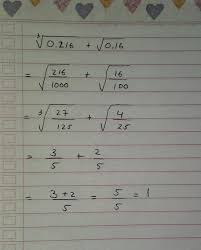 ∛0.216 + √0.16
= √216/1000 + √16/100
= ∛27/125 + √4/25
= 3/5 + 2/5
= 3+2/5 = 5/5 = 1